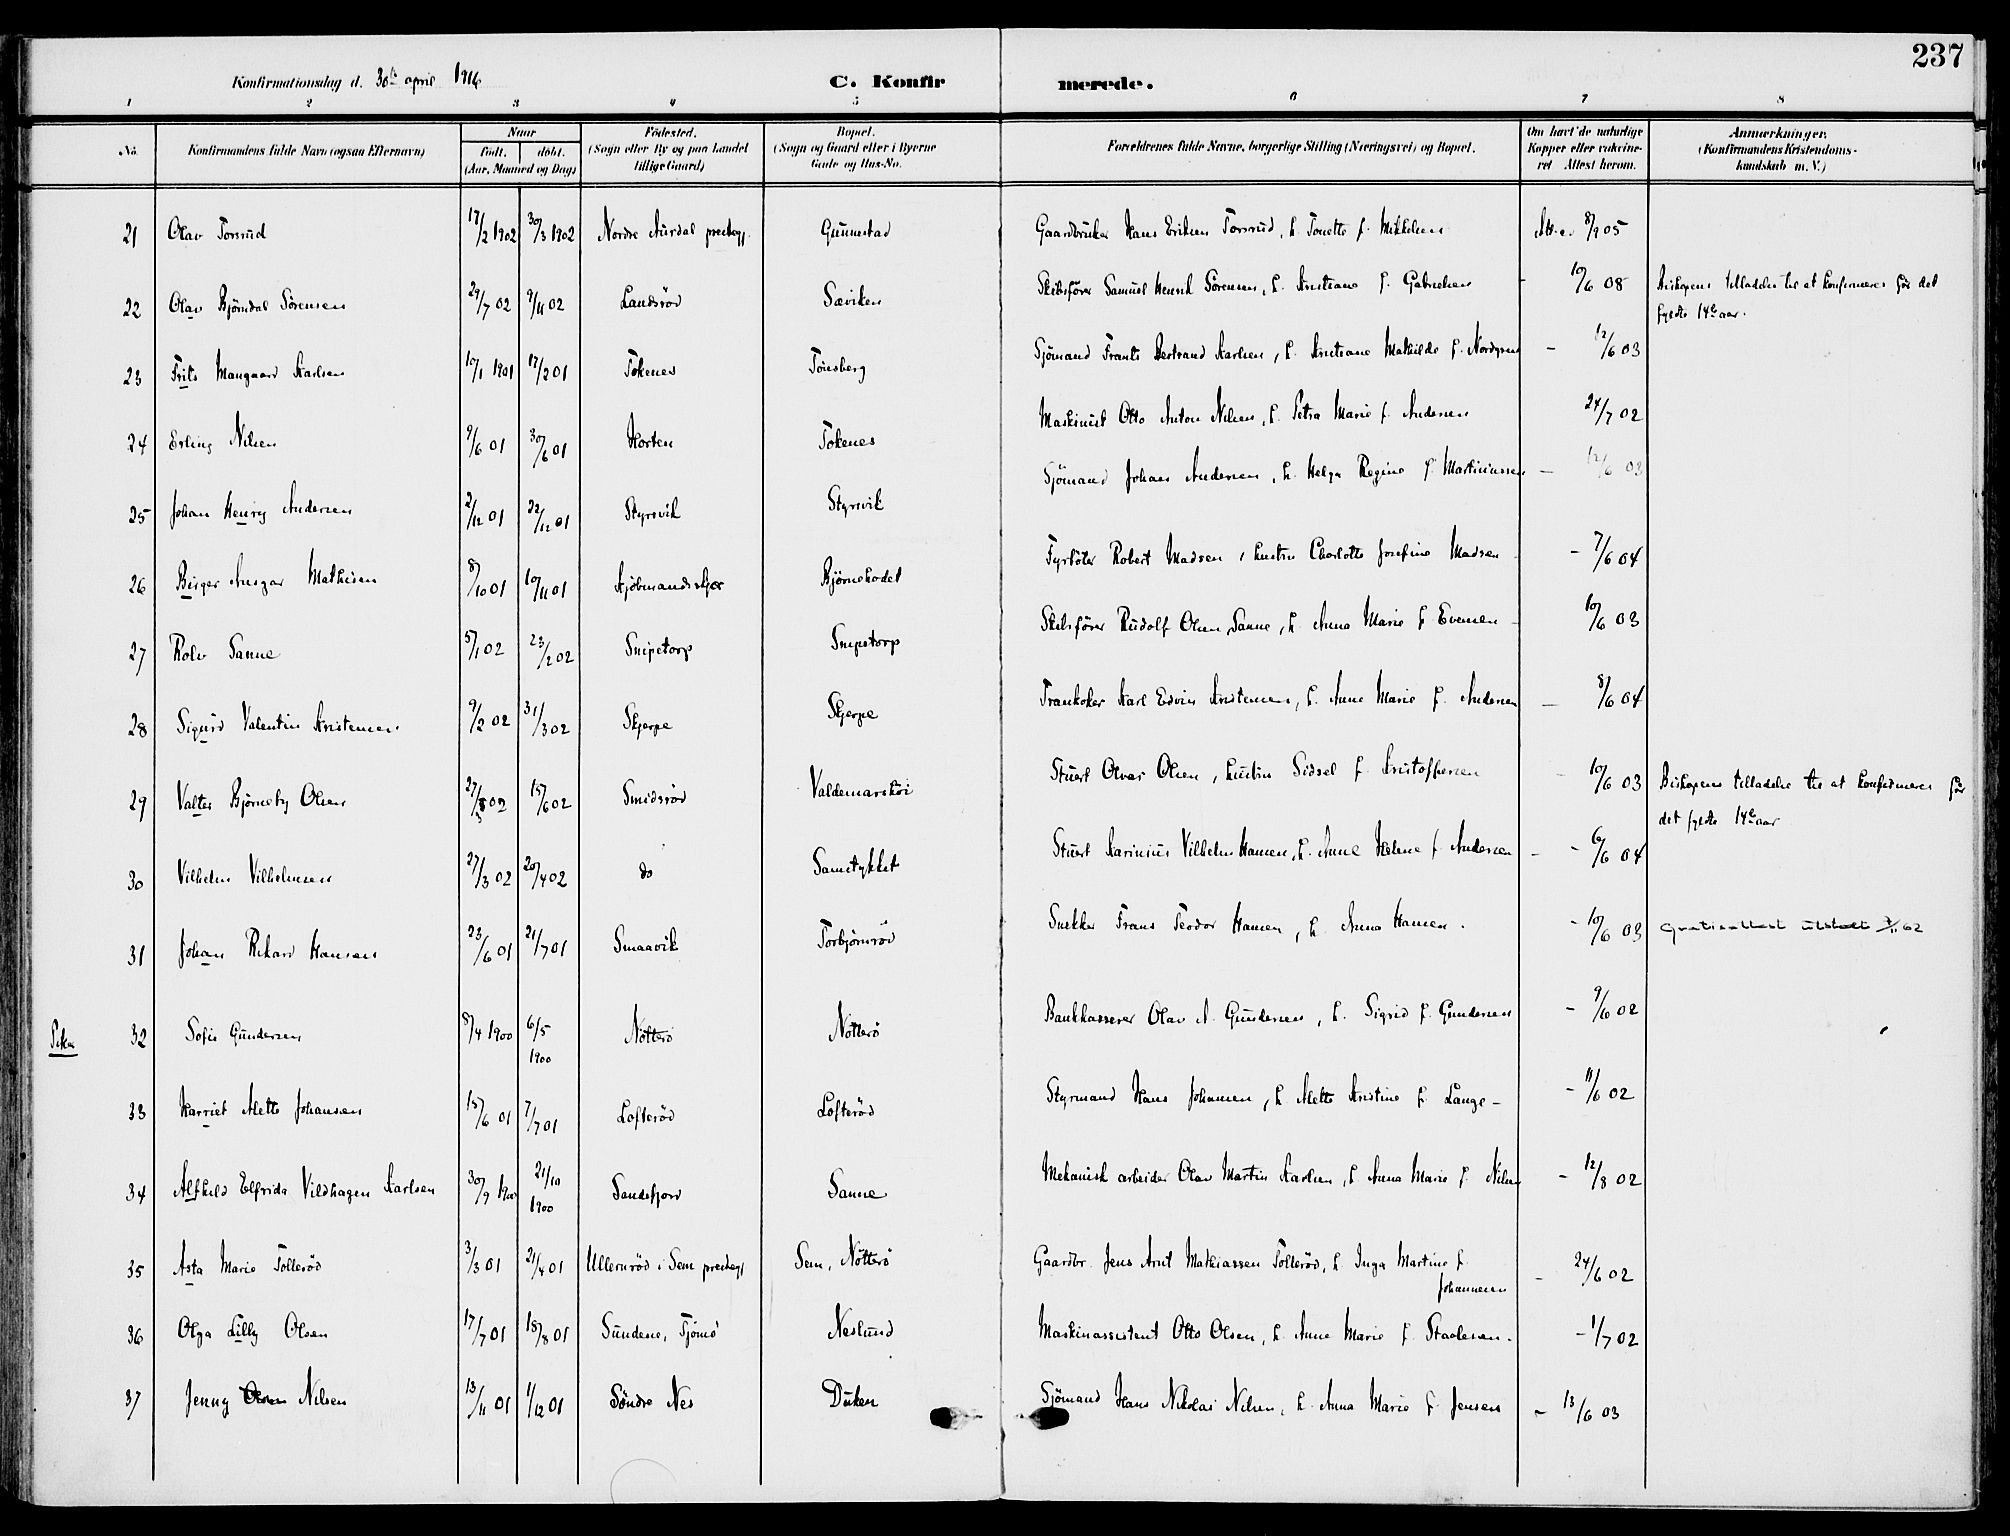 237
Konfirmationsdag d. 30te april 1916
C. Konfirmerede.
1 2 3 4 5 6 7 8
No. Konfirmandens fulde Navn (ogsaa Efternavn) Naar født. døbt. (Aar, Maaned og Dag) Fødested. (Sogn eller By og paa Landet tillige Gaard) Bopæl. (Sogn og Gaard eller i Byerne Gade og Hus-No. Forældrenes fulde Navne, borgerlige Stilling (Næringsvei) og Bopæl. Om havt de naturlige Kopper eller vaccineret Attest herom. Anmærkninger. (Konfirmandens Kristendomskundskab m. V.)
21 Olav Torsrud 17/2 1902 30/3 1902 Nordre Aurdal prestegj. Gunnestad Gaardbruker Hans Eriksen Torsrud, h. Tonette f. Mikkelsen 8/9 05
22 Olav Bjørndal Sørensen 29/7 02 9/11 02 Landsrød Sæviken Skibsfører Samuel Henrik Sørensen, h. Kristiane f. Gabrielsen - 10/6 08 Biskopens tilladelse til at konfirmeres før det fyldte 14de aar.
23 Frits Mangaard Karlsen 10/1 1901 17/2 01 Tokenes Tønsberg Sjømand Frants Bertrand Karlsen, h. Kristiane Mathilde f. Nordgren - 12/6 03
24 Erling Nilsen 9/6 01 30/6 01 Horten Tokenes Maskinist Otto Anton Nilsen, h. Petra Marie f. Andersen 24/7 02
25 Johan Henry Andersen 2/12 01 22/12 01 Styrsvik Styrsvik Sjømand Johan Andersen, h. Helga Regine f. Martiniussen - 12/6 03
26 Birger Ansgar Mathisen 8/10 01 10/11 01 Kjøbmandskjær Bjørnehodet Fyrbøter Robert Madsen, hustru Charlotte Josefine Madsen - 7/6 04
27 Rolv Sanne 5/1 02 23/2 02 Snipetorp Snipetorp Skibsfører Rudolf Olsen Sanne, h. Anna Marie f. Evensen - 10/6 03
28 Sigurd Valentin Kristensen 9/2 02 31/3 02 Skjerpe Skjerpe Trankoker Karl Edvin Kristensen, h. Anne Marie f. Andersen - 8/6 04
29 Valter Bjørneby Olsen 27/5 02 15/6 02 Smidsrød Valdemarskøi Stuert Olvar Olsen, hustru Sidsel f. Kristoffersen - 10/6 03 Biskopens tilladelse til at konfirmeres før det fyldte 14de aar
30 Vilhelm Vilhelmsen 27/3 02 20/4 02 do Samstykket Stuert Karinius Vilhelm Hansen, h. Anne Helene f. Andersen - - 6/6 04
31 Johan Rikard Hansen 23/6 01 21/7 01 Smaavik Torbjørnrød Snekker Frans Teodor Hansen, h. Anna Hansen. - 10/6 03 Gratisattest utstedt 7/11 62
Piker 32 Sofie Gundersen 8/4 1900 6/5 1900 Nøtterø Nøtterø Bankkasserer Olav A. Gundersen, h. Sigrid f. Gundersen - 9/6 02
33 Harriet Alette Johansen 15/6 01 7/7 01 Lofterød Lofterød Styrmand Hans Johansen, h. Alette Kristine f. Lange - - 11/6 02
34 Alfhild Elfrida Vildhagen Karlsen 30/9 1900 21/10 1900 Sandefjord Sanne Mekanisk arbeider Olav Martin Karlsen, h. Anna Marie f. Nilsen - 12/8 02
35 Asta Marie Tollerød 3/3 01 21/4 01 Ullernrød i Sem prestegj Sem, Nøtterø Gaardbr. Jens Arnt Mathiassen Tollerød, h. Inga Martine f. Johannesen - 24/6 02
36 Olga Lilly Olsen 17/7 01 18/8 01 Sundene, Tjømø Neslund Maskinassistent Otto Olsen, h. Anne Marie f. Staalesen. - 1/7 02
37 Jenny Olsen Nilsen 13/11 01 1/12 01 Søndre Nes Duken Sjømand Hans Nikolai Nilsen, h. Anna Marie f. Jensen - 13/6 03